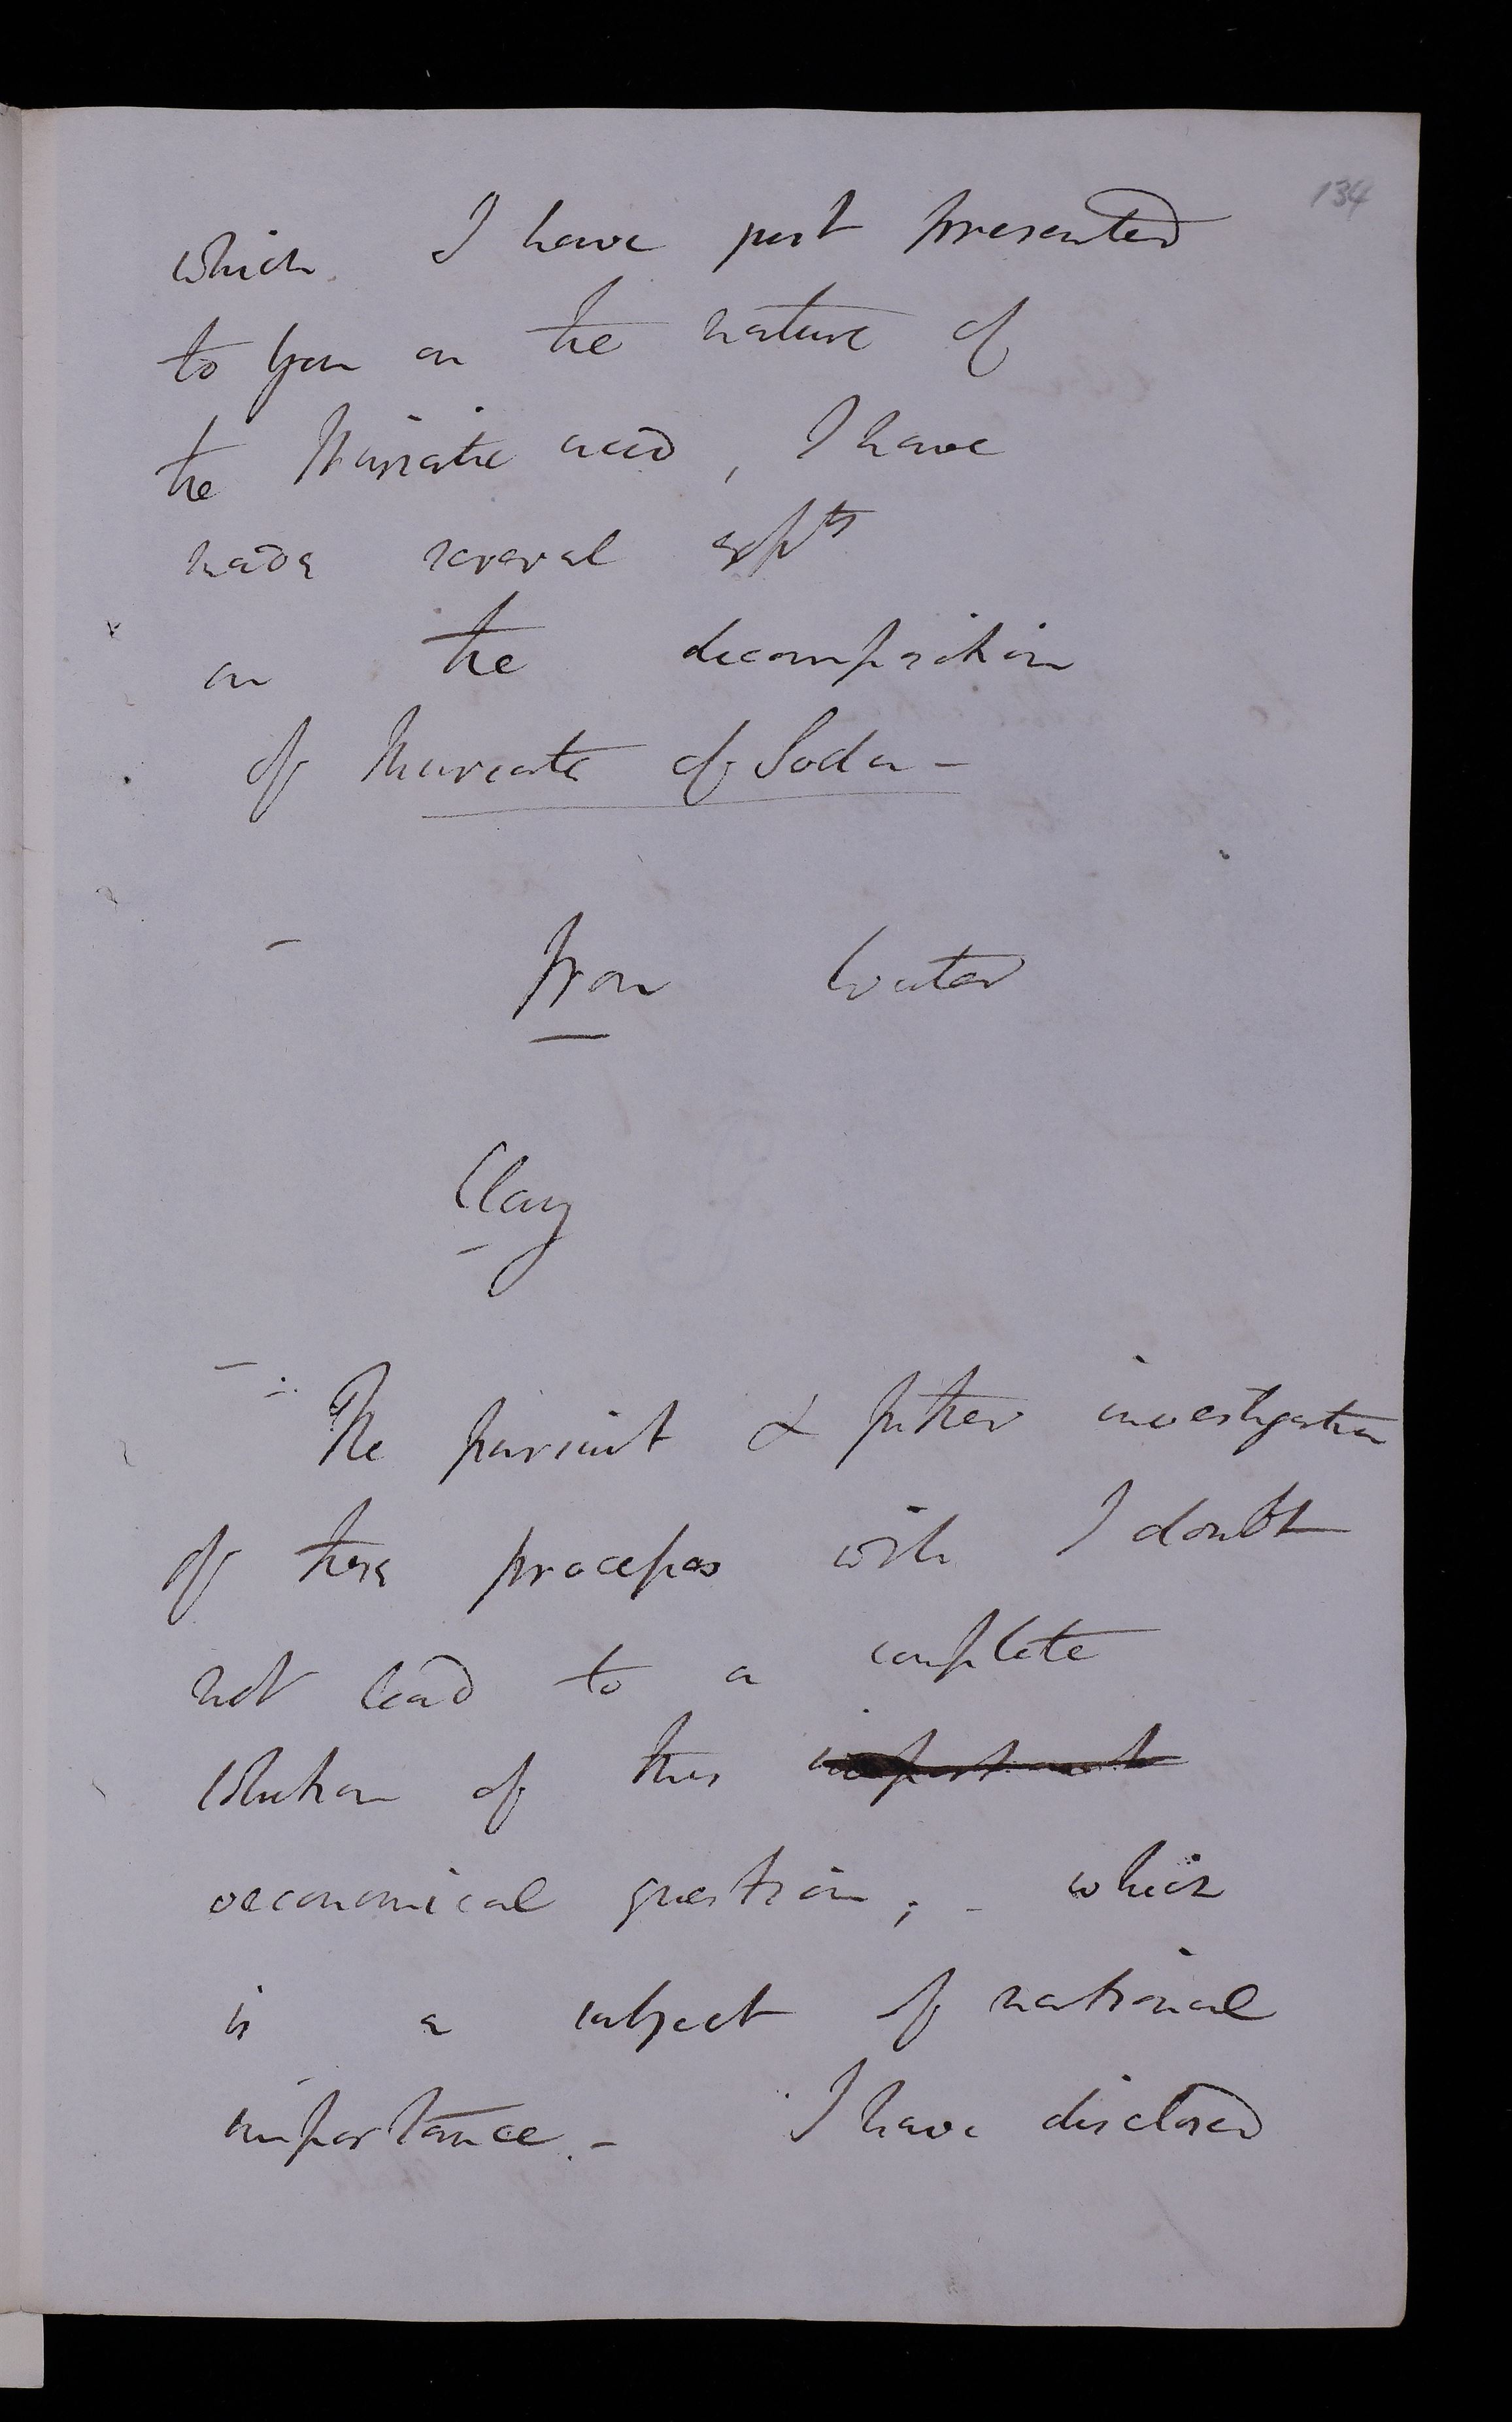 134
which I have just presented
to you on the nature of
the Muriatic acid, I have
made several expts
on the decomposition
of Muriate of Soda -
- Iron Water
Clay
- The pursuit & further investigation
of these processes will I doubt
not lead to a complete
solution of this important
oeconomical question; - which
is a subject of national
importance. - I have disclosed